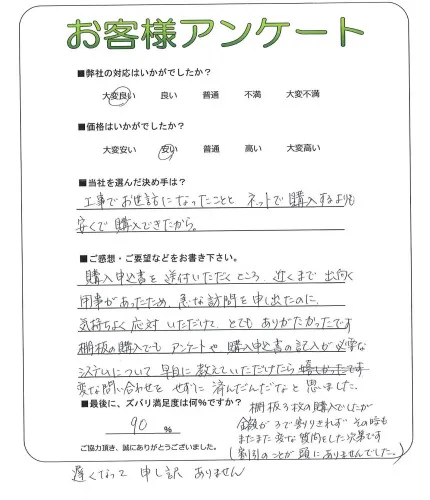 お客様アンケート
■弊社の対応はいかがでしたか？
大変良い 良い 普通 不満 大変不満
■価格はいかがでしたか？
大変安い 安い 普通 高い 大変高い
■当社を選んだ決め手は？
工事でお世話になったことと ネットで購入するよりも
安くで購入できたから。
■ご感想・ご要望などをお書き下さい。
購入申込書を送付いただくところ、近くまで出向く
用事があったため、急な訪問を申し出たのに、
気持ちよく応対いただけて、とてもありがたかったです
棚板の購入でも アンケートや、購入申込書の記入が必要な
システムについて 早目に教えていただけたら 嬉しかったです
変な問い合わせを せずに 済んだんだなと 思いました。
■最後に、ズバリ満足度は何％ですか？
90 ％
棚板3枚の購入でしたが
金額が3で割りきれず その時も
またまた 変な質問をした次第です
(割引のことが頭にありませんでした。)
ご協力頂き、誠にありがとうございました。
遅くなって 申し訳ありません